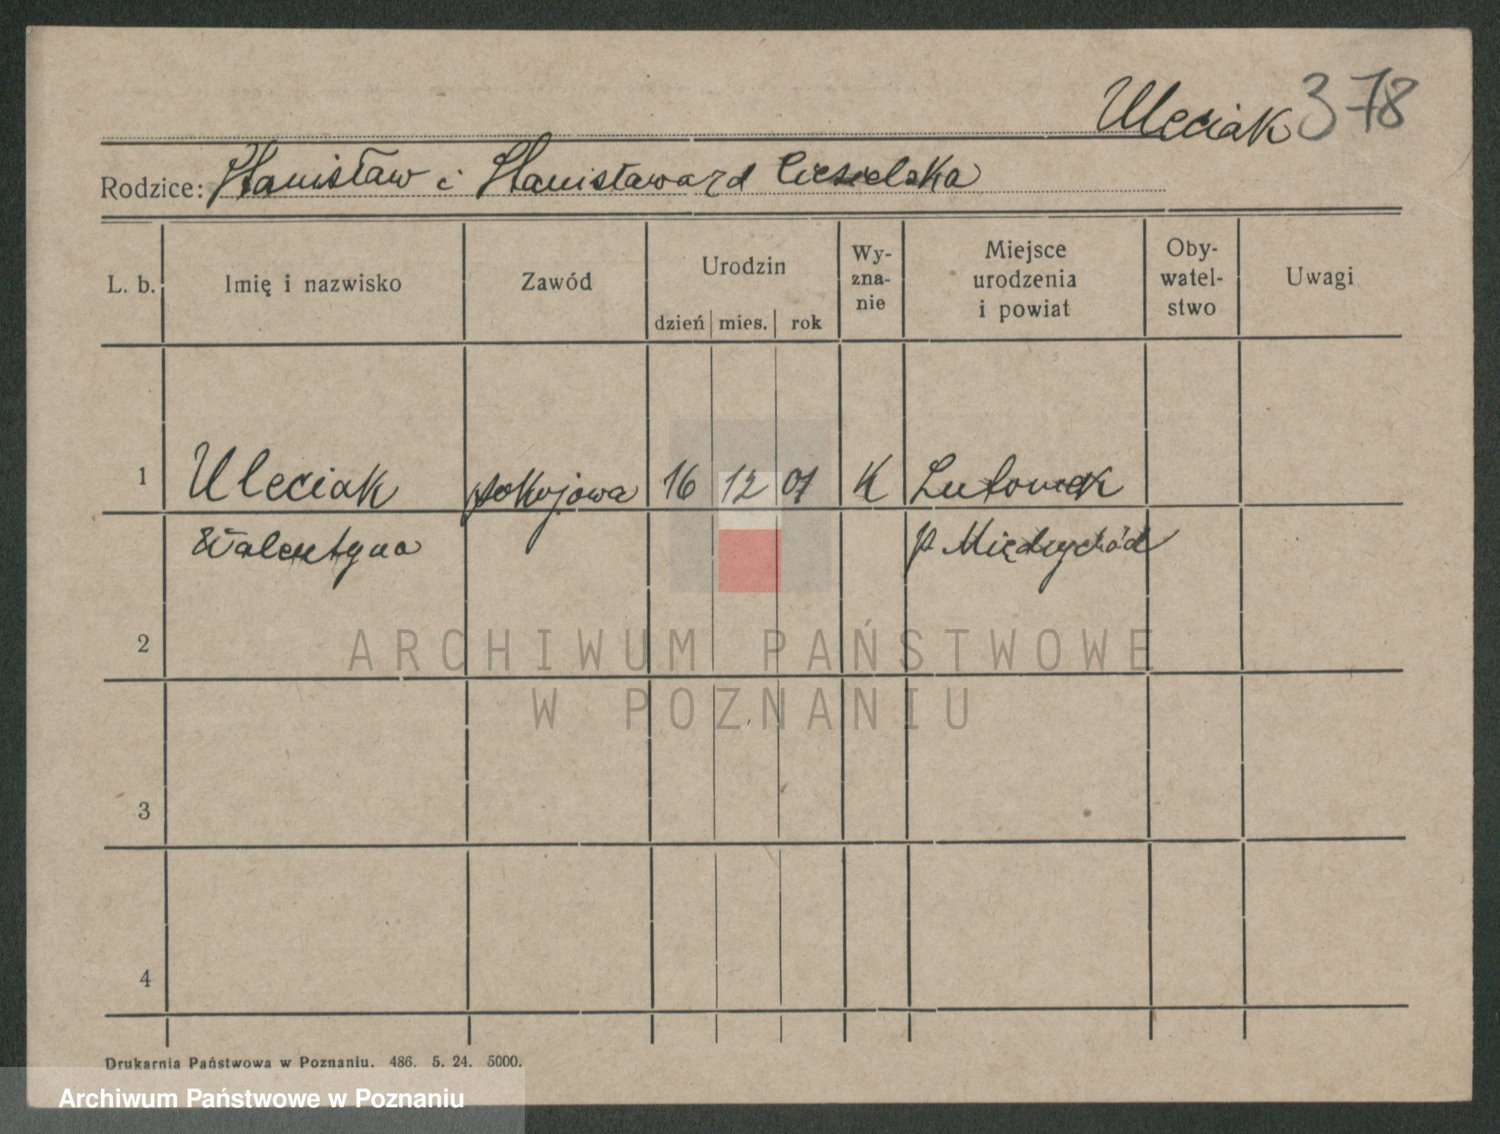 Uleciak 378
Rodzice: Stanisław i Stanisława zd Ciesielska
L. b. Imię i nazwisko Zawód Urodzin Wy-zna-nie Miejsce urodzenia i powiat Oby-watel-stwo Uwagi
dzień mies. rok
1 Uleciak pokojowa 16 12 01 K Lutomek
Walentyna p. Międzychód
2
3
4
ARCHIWUM PAŃSTWOWE
W POZNANIU
Drukarnia Państwowa w Poznaniu. 486. 5. 24. 5000.
Archiwum Państwowe w Poznaniu